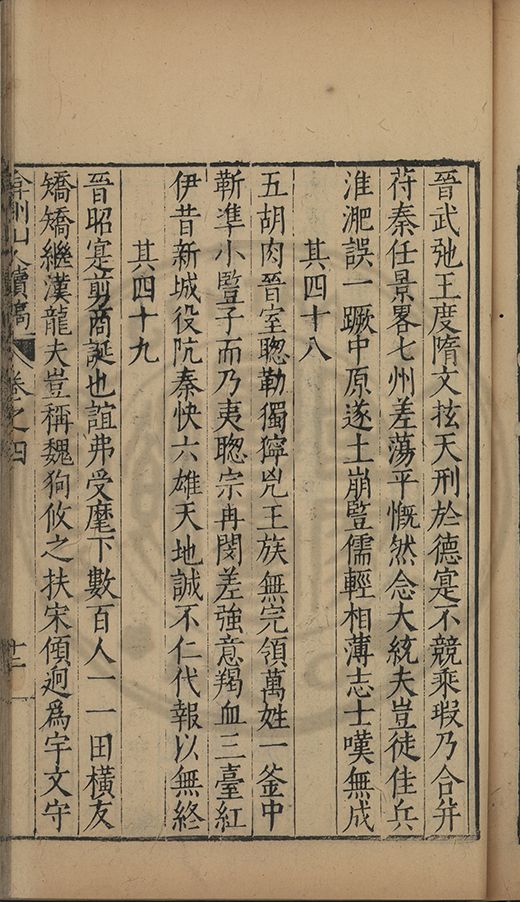 晉武弛王度隋文抆天刑於德寔不競乘瑕乃合并
苻秦任景畧七州差蕩平慨然念大統夫豈徒佳兵
淮淝誤一蹶中原遂土崩豎儒輕相薄志士嘆無成
其四十八
五胡肉晉室聦勒獨獰兇王族無完領萬姓一釜中
靳準小豎子而乃夷聦宗冉閔差強意羯血三臺紅
伊昔新城役阬秦快六雄天地誠不仁代報以無終
其四十九
晉昭寔剪商誕也誼弗受麾下數百人一一田橫友
矯矯繼漢龍夫豈稱魏狗攸之扶宋傾迥爲宇文守
弇州山人續稿 卷之四 十三